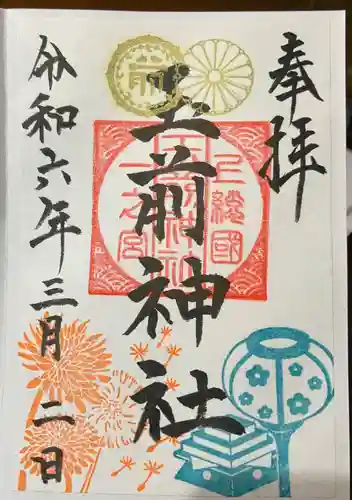 奉拝
玉前神社
上総國
一之宮
玉前神社
令和六年三月二日